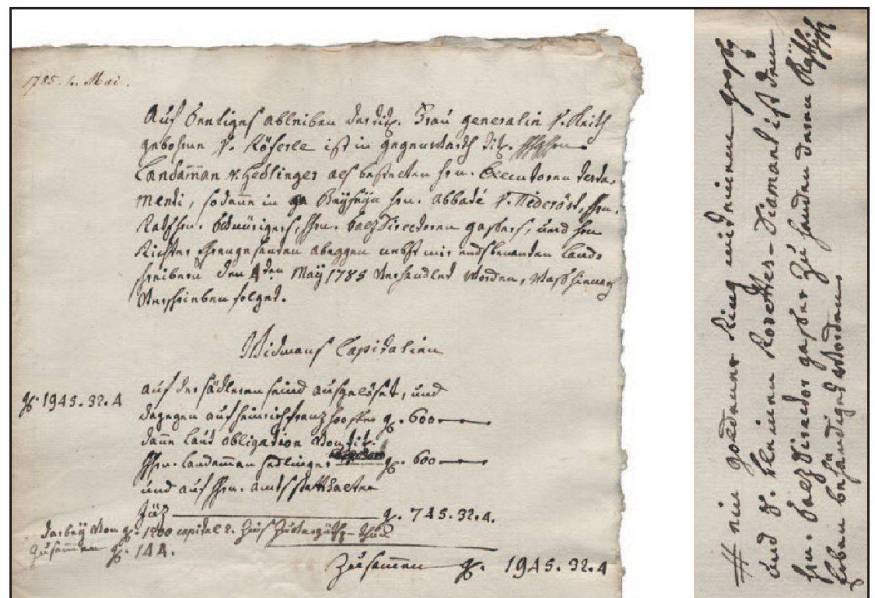 1785. 4. Mai.
Auf Seeliges ableiben der tit. Frau generalin v. Reith
gebohrne v. Köferle ist in gegenwarth tit.
Landamman v. Hedlinger als besteten hrn. Executoren testa-
menti, sodann in Beyseyn hrn. abbaté v. Nideröst, hrn.
Rathshrn. hrn. Salz Directoren gaspers, und hrn
Richter abeggen nebst mir endsbenanten Land-
schreibern den 4ten May 1785 verhandlet worden, wass hiernach
verschrieben folget.
Widmans Capitalien
gl. 1945. 32. 4
auf der Sädleren seind ausgelöset, und
dagegen auf heinrich franz gl. 600
dann laut obligation von tit.
hrn. Landamman Hedlinger gl. 600
und auf hrn. amtsstatthalter
Jüz g. 745. 32. 4.
darbey von gl. 1200 capital 2. Zins
Zusamen gl. 144.
Zusamen gl. 1945. 32. 4
# ein goldener Ring mit einem gross
und 8. kleinen Rosetten-Diamant ist dem
hrn. Salz Director gasper zu handen deren
Erben behändiget worden